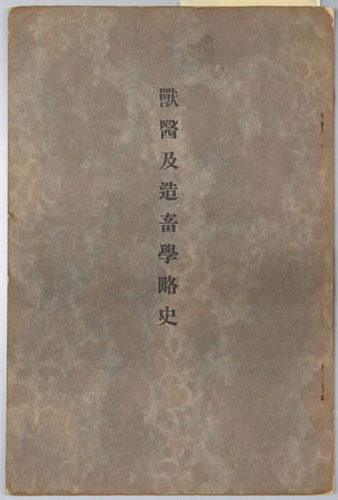 獸醫及造畜學略史